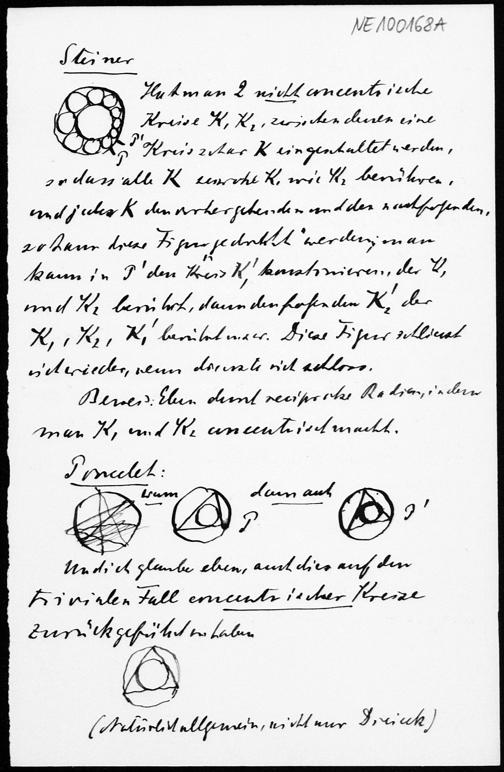 NE100168A
Steiner
Hat man 2 nicht concentrische
Kreise K₁ K₂, zwischen denen eine
P'
P
Kreisschar K eingeschaltet werden,
sodass alle K sowohl K₁ wie K₂ berühren,
und jeder K den vorhergehenden und den nachfolgenden,
so kann diese Figur „gedreht" werden; man
kann in P' den Kreis K'₁ konstruieren, der K₁
und K₂ berührt, dann den folgenden K'₂ der
K₁, K₂, K'₁ berührt usw. Diese Figur schliesst
sich wieder, wenn die erste sich schloss.
Beweis: Eben durch reciproke Radien, indem
man K₁ und K₂ concentrisch macht.
Poncelet:
wenn
P
dann auch
P'
Und ich glaube eben, auch dies auf den
trivialen Fall concentrischer Kreise
zurückgeführt zu haben
(Natürlich allgemein, nicht nur Dreieck)